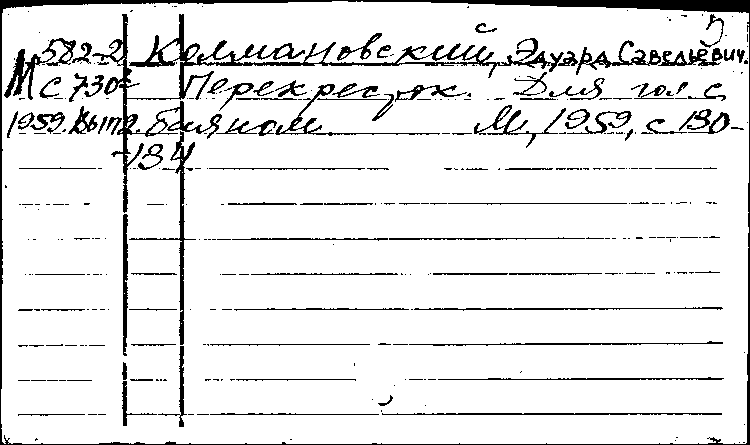 5
582-2 Колмановский, Эдуард Савельевич.
М С 730² Перекресток. Для гол. с
1959. Вып2. баяном М, 1959, с 130-
-134